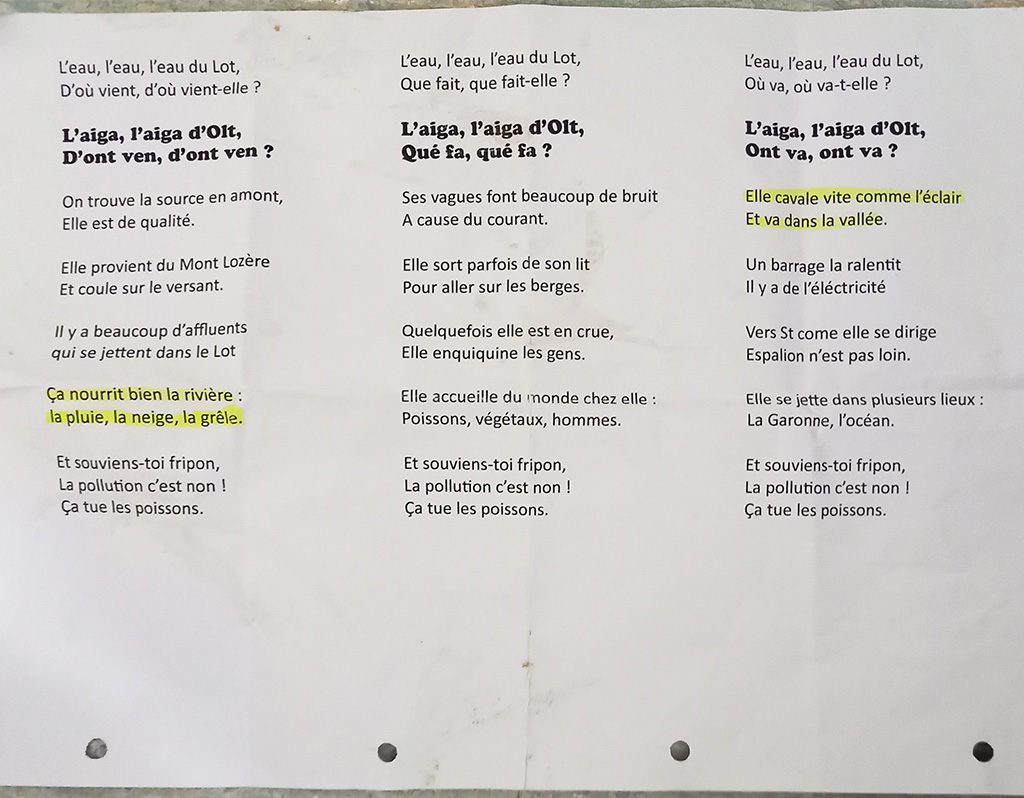 L'eau, l'eau, l'eau du Lot,
D'où vient, d'où vient-elle ?
L'aiga, l'aiga d'Olt,
D'ont ven, d'ont ven ?
On trouve la source en amont,
Elle est de qualité.
Elle provient du Mont Lozère
Et coule sur le versant.
Il y a beaucoup d'affluents
qui se jettent dans le Lot
Ça nourrit bien la rivière :
la pluie, la neige, la grêle.
Et souviens-toi fripon,
La pollution c'est non !
Ça tue les poissons.
L'eau, l'eau, l'eau du Lot,
Que fait, que fait-elle ?
L'aiga, l'aiga d'Olt,
Qué fa, qué fa ?
Ses vagues font beaucoup de bruit
A cause du courant.
Elle sort parfois de son lit
Pour aller sur les berges.
Quelquefois elle est en crue,
Elle enquiquine les gens.
Elle accueille du monde chez elle :
Poissons, végétaux, hommes.
Et souviens-toi fripon,
La pollution c'est non !
Ça tue les poissons.
L'eau, l'eau, l'eau du Lot,
Où va, où va-t-elle ?
L'aiga, l'aiga d'Olt,
Ont va, ont va ?
Elle cavale vite comme l'éclair
Et va dans la vallée.
Un barrage la ralentit
Il y a de l'éléctricité
Vers St come elle se dirige
Espalion n'est pas loin.
Elle se jette dans plusieurs lieux :
La Garonne, l'océan.
Et souviens-toi fripon,
La pollution c'est non !
Ça tue les poissons.